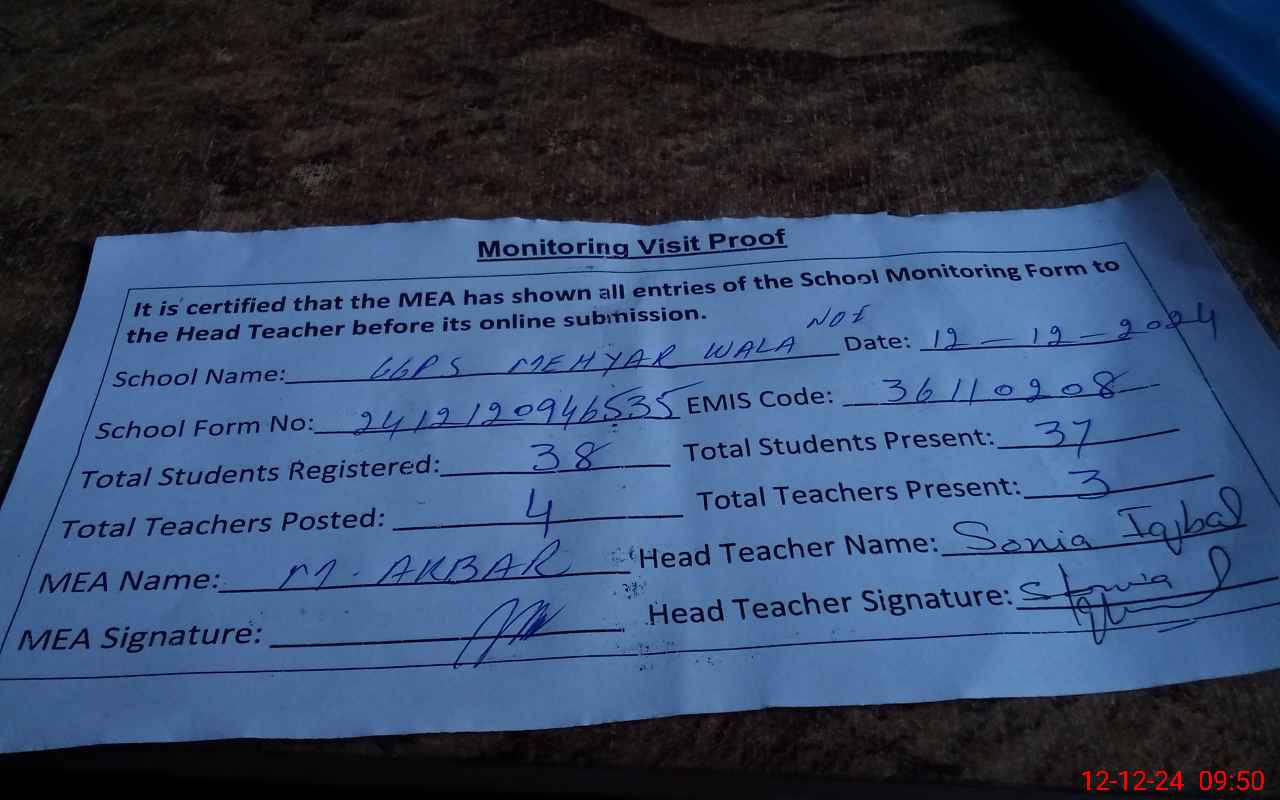 Monitoring Visit Proof
It is certified that the MEA has shown all entries of the School Monitoring Form to
the Head Teacher before its online submission.
School Name: GGPS MEHYAR WALA NOI Date: 12-12-2024
School Form No: 2412120946535 EMIS Code: 36110208
Total Students Registered: 38 Total Students Present: 37
Total Teachers Posted: 4 Total Teachers Present: 3
MEA Name: M. AKBAR Head Teacher Name: Sonia Iqbal
MEA Signature: Head Teacher Signature: Sonia Iqbal
12-12-24 09:50